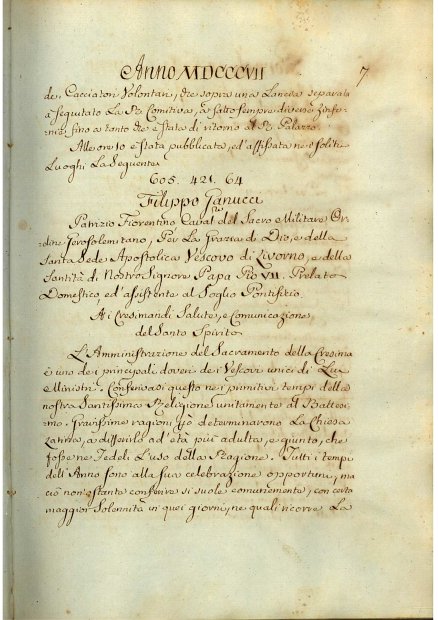 Anno MDCCCVII
7
de' Cacciatori Volontari, che sopra una Lancia separata
a seguitato La Rl. Comitiva, à fatto sempre diverse
fino a tanto che è stata di ritorno al Rl. Palazzo.
Alle ore 10 è stata pubblicata, ed' affissata nei soliti
Luoghi La Seguente
605. 421. 64
Filippo Ganucci
Patrizio Fiorentino Caval.re del Sacro e Militare Or-
dine Gerosolemitano, Per La Grazia di Dio, e della
Santa Sede Apostolica Vescovo di Livorno, e della
Santità di Nostro Signore Papa Pio VII. Prelato
Domestico ed' assistente al Soglio Pontificio.
Ai Cresimandi Salute, e Comunicazione
del Santo Spirito
L'Amministrazione del Sacramento della Cresima
è uno dei principali doveri dei Vescovi unici di Lui
Ministri. Conferivasi questo nei primitivi tempi della
nostra Santissima Religione unitamente al Battesi-
mo. Gravissime ragioni determinarono La Chiesa
a differirlo ad' età più adulta, e giunto, che
fosse ne' Fedeli L'uso della Ragione. Tutti i tempi
dell'Anno sono alla sua celebrazione opportuni, ma
ciò non ostante conferire si suole comunemente, con certa
maggior Solennità in quei giorni, ne quali ricorre La